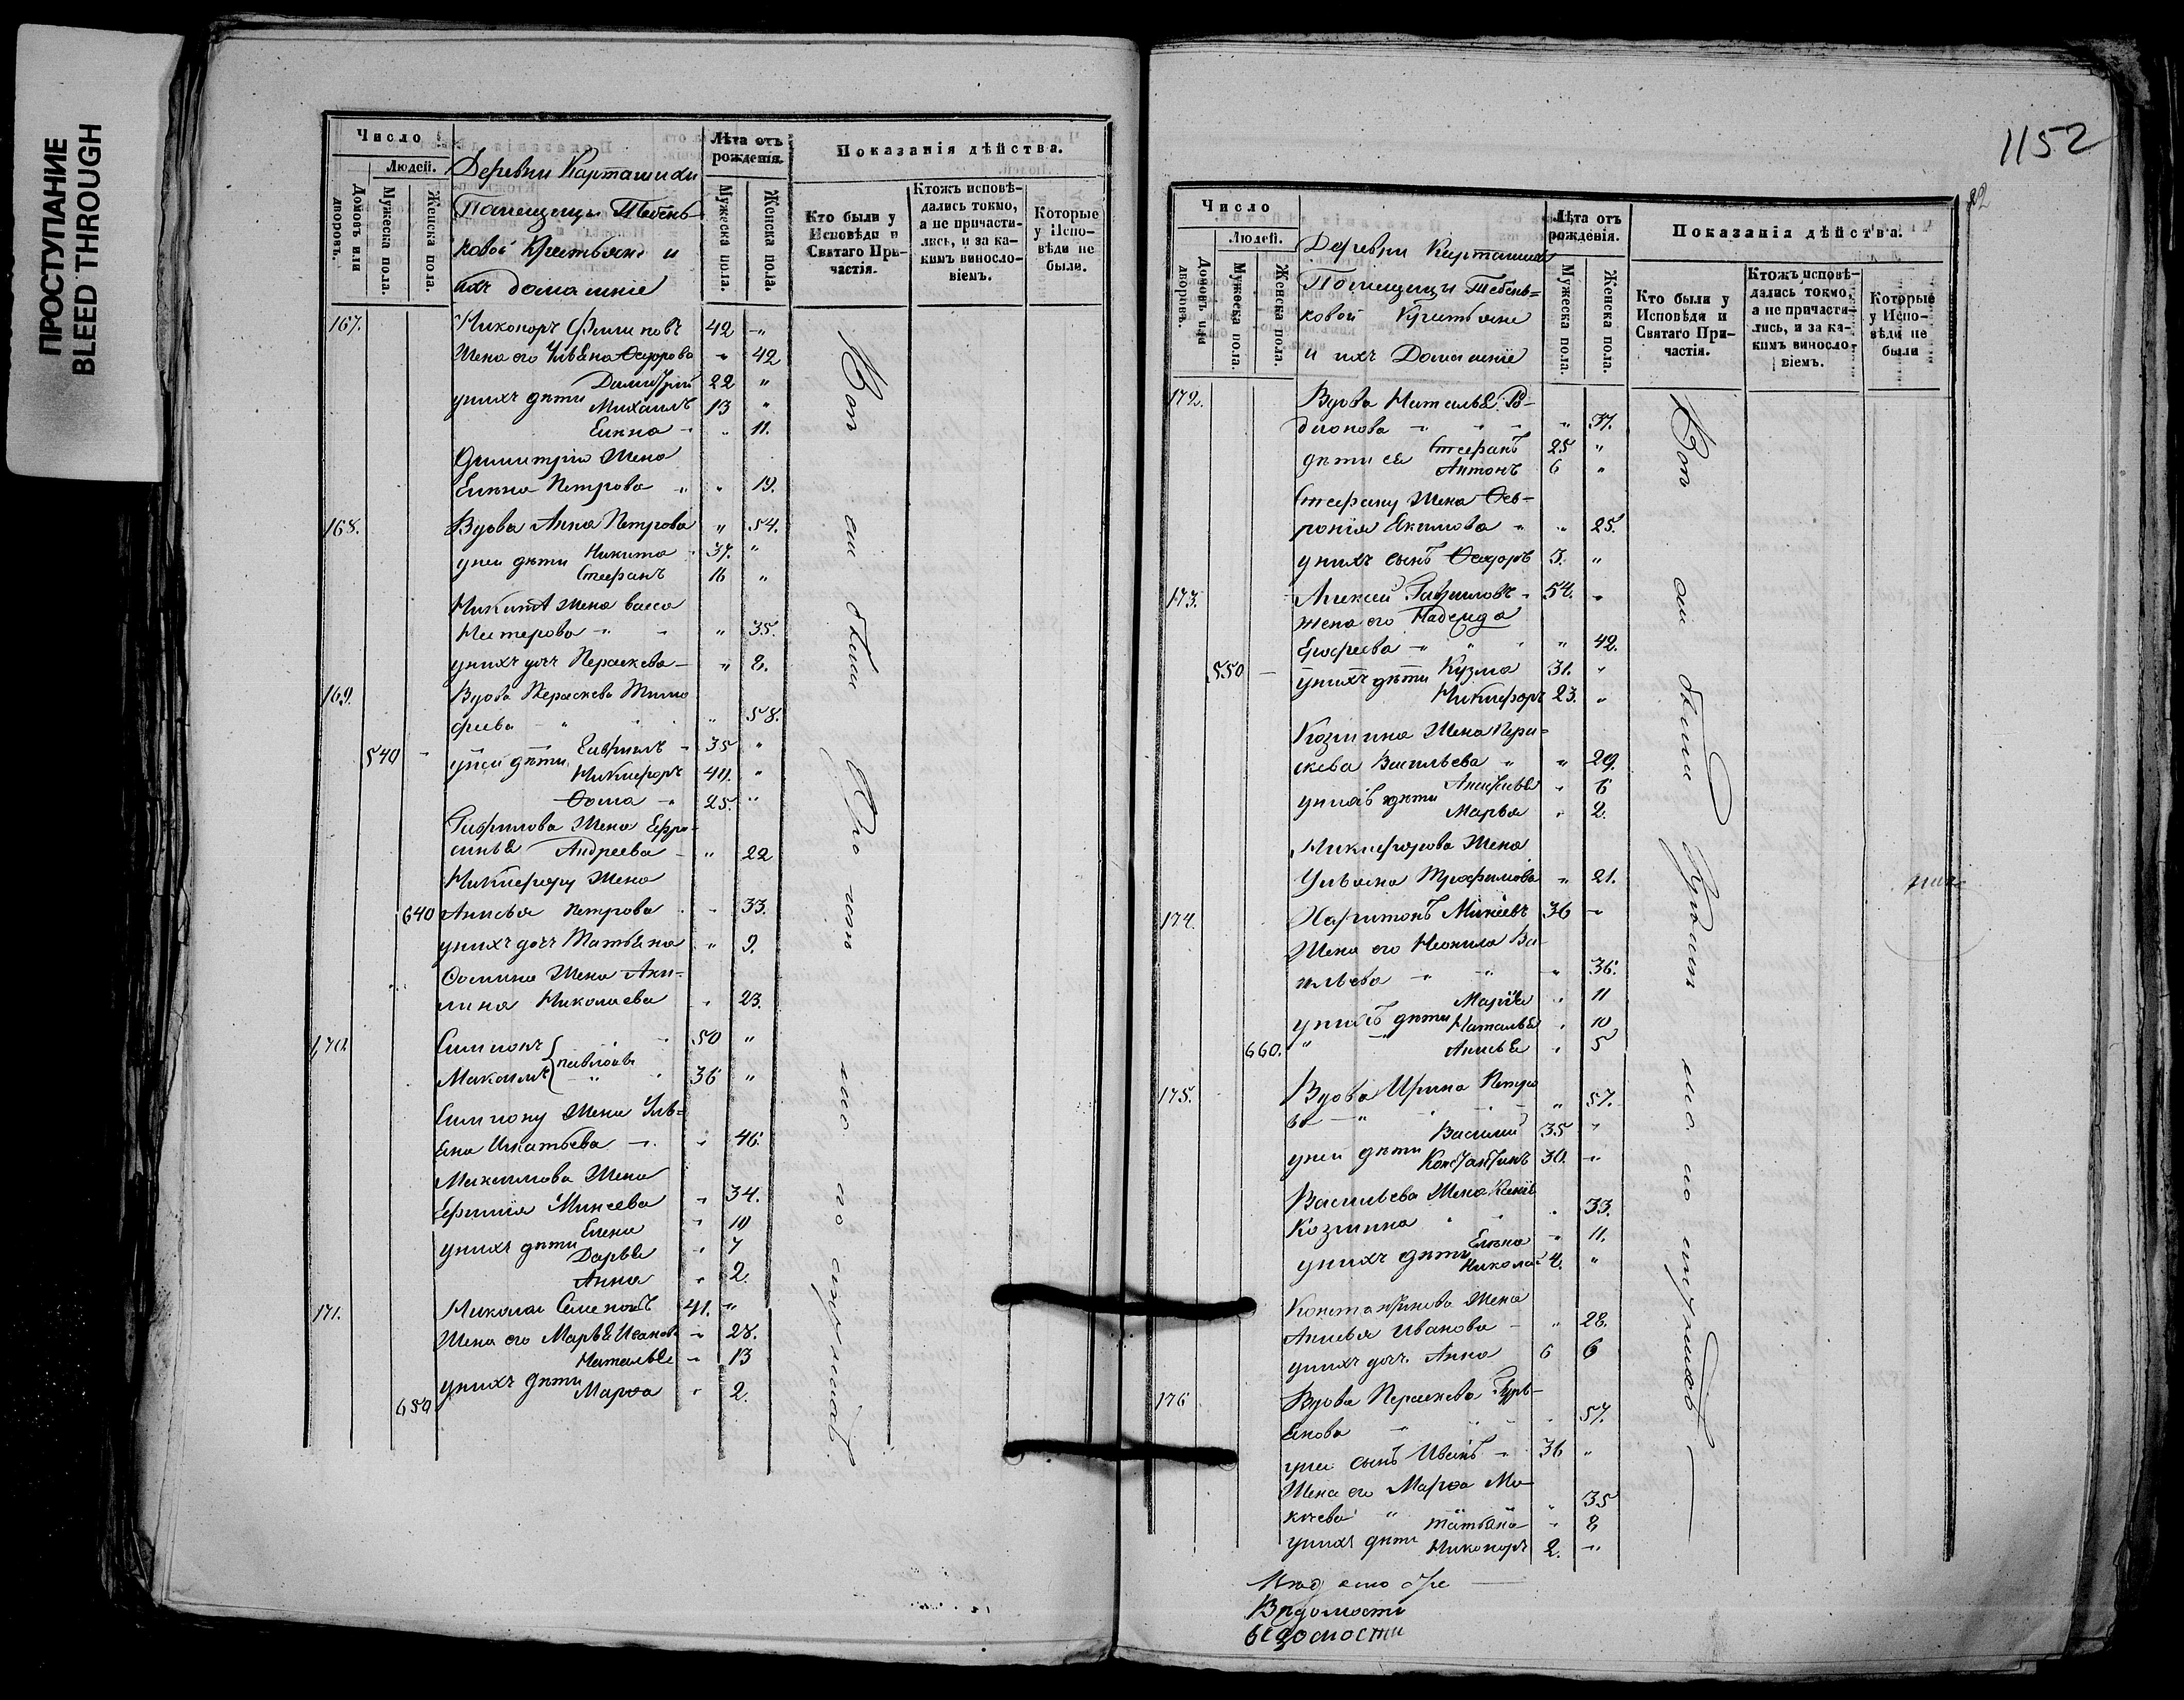 ПРОСТУПАНИЕ
BLEED THROUGH
Число
Людей.
Домовъ или дворовъ.
Мужеска пола.
Женска пола.
Деревни Карташихи
Помещицы Тебень-
ковой Крестьяне и
ихъ домашніе
Лѣта отъ рожденія.
Мужеска пола.
Женска пола.
Показанія дѣйства.
Кто были у Исповѣди и Святаго Причастія.
Ктожъ исповѣ-
дались токмо,
а не причасти-
лись, и за ка-
кимъ винослo-
віемъ.
Которые
у Испо-
вѣди не
были.
167. Никоноръ Филиповъ 42 "
Жена его Ульяна Ѳедорова " 42
у нихъ дѣти Димитрій 22 "
Михаилъ 13 "
Елена " 11.
Димитрія Жена
Елена Петрова " " 19.
168. Вдова Анна Петрова " 54.
у неи дѣти Никита 37. "
Стефанъ 16 "
Никита Жена васса
Нестерова " " 35.
у нихъ дочь Параскева " 8.
169. Вдова Параскева Тимо
феева " " 58.
540 у неи дѣти Гаврилъ 35 "
Никифоръ 40. "
Ѳома 25. "
Гаврилова Жена Ефро-
синья Андреева " 22
Никифору Жена
640 Анисья Петрова " 33.
у нихъ дочь Татьяна " 9.
Ѳомина Жена Аки-
лина Николаева " 23.
170. Симионъ 50 "
Максимъ павловы 36 "
Симиону Жена Улья-
яна Игнатьева " 46
Максимова Жена
Ефимия Минеева " 34.
Елена " 10
у нихъ дѣти
Дарья " 7
Анна " 2.
171. Николай Семеновъ 41. "
Жена его Марья Иванова " 28.
Наталья " 13
у нихъ дѣти Марѳа " 2.
650
Вси сіи были
1152
Число
Людей.
Домовъ или дворовъ.
Мужеска пола.
Женска пола.
Деревни Карташихи
Помещицы Тебень=
ковой Крестьяне
и ихъ Домашніе
Лѣта отъ рожденія.
Мужеска пола.
Женска пола.
Показанія дѣйства.
Кто были у Исповѣди и Святаго Причастія.
Ктожъ исповѣ-
дались токмо,
а не причасти-
лись, и за ка-
кимъ винослo-
віемъ.
Которые
у Испо-
вѣди не
были
172. Вдова Наталья Ро-
дионова " " 37.
дѣти ея Стефанъ 25 "
Антонъ 6 "
Стефану Жена Фев-
ронія Екимова " " 25
у нихъ сынъ Ѳедоръ 3. "
173. Алексей Гавриловъ 54. "
жена его Надежда
Ерофеева " " 42.
550 у нихъ дѣти Кузма 31. "
Никифоръ 23. "
Козмина Жена Пара-
скева Васильева " " 29.
у нихъ дѣти Анисья " 6
Марья " 2.
Никифорова Жена
Ульяна Трофимова " 21.
174. Харитонъ Минеевъ 36 "
Жена его Неонила Ва-
сильева " " 36.
Марія " 11
у нихъ дѣти Наталья " 10
660. Анисья " 5
175. Вдова Ирина Петро
ва " " 57.
Василій 35 "
у неи дѣти
Константинъ 30. "
Васильева Жена Ксенія
Козмина " 33.
Елена " 11.
у нихъ дѣти
Николай 4. "
Константинова Жена
Анисья Иванова " 28.
у нихъ дочь Анна 6 6
176 Вдова Параскева Гурь-
янова " 57.
у неи сынъ Иванъ 36 "
Жена его Марѳа Мо-
кеева " " 35
Татьяна " 8
у нихъ дѣти
Никоноръ 2. "
Вси сіи были
Вѣдомости
ведомости